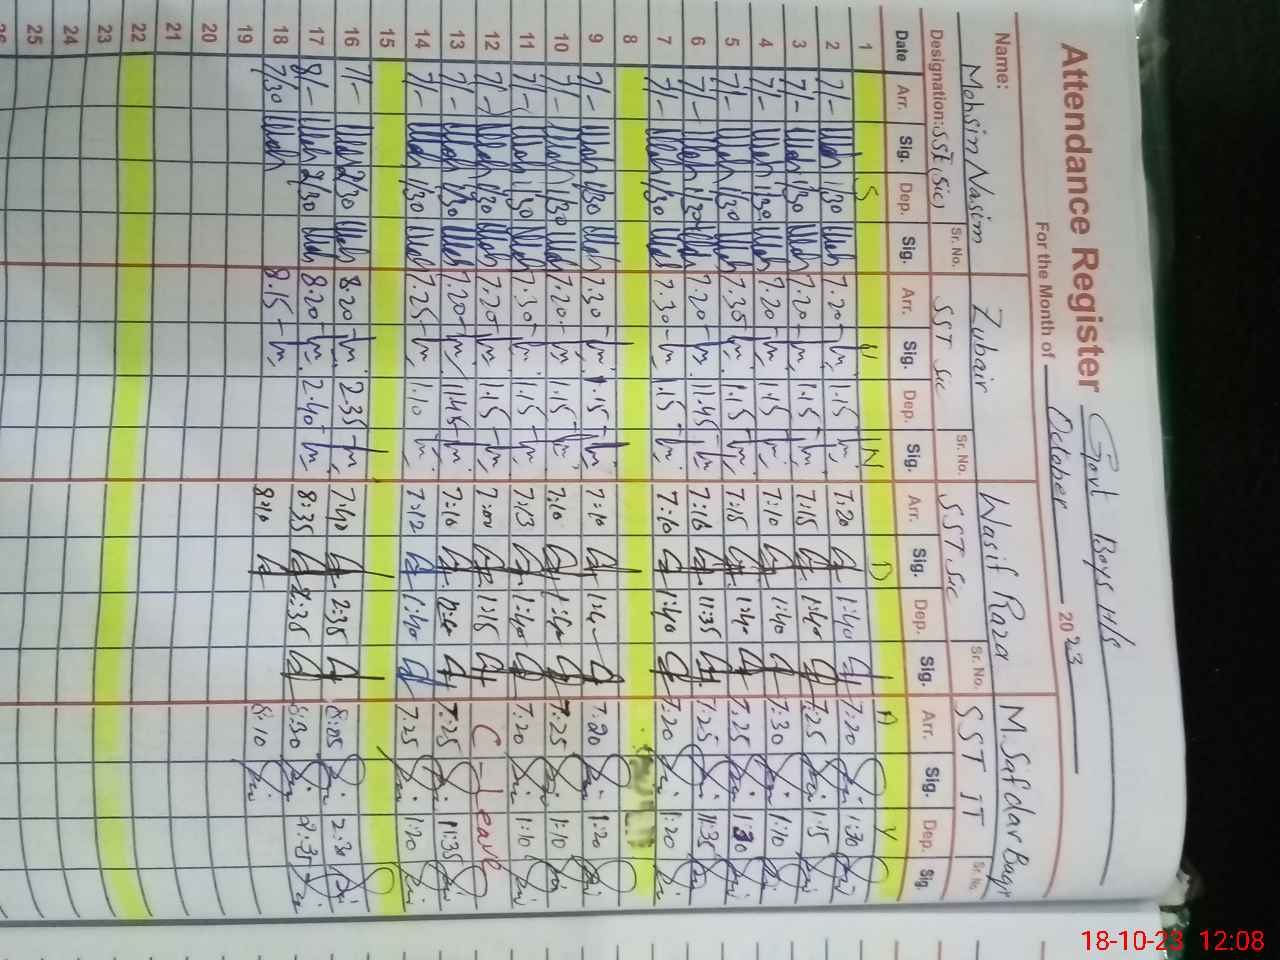 Attendance Register Govt Boys H/S
For the Month of October 2023
Name: Mohsin Nasim Zubair Wasif Raza M. Safdar
Designation: SST (Sic) Sr. No. SST Sic Sr. No. SST Sic Sr. No. SST IT Sr. No.
Date Arr. Sig. Dep. Sig. Arr. Sig. Dep. Sig. Arr. Sig. Dep. Sig. Arr. Sig. Dep. Sig.
1 S U N D A Y
2 7/- 1/30 7.20 1.15 7:20 1:40 7:20 1:30
3 7/- 1/30 7.20 1.15 7:15 1:40 7.25 1:15
4 7/- 1/30 7.20 1.15 7:10 1:40 7:30 1:10
5 7/- 1/30 7.35 1.15 7:15 1:40 7.25 1:30
6 7/- 1/30 7.20 11.45 7:10 11:35 7.25 11:35
7 7/- 1/30 7.30 1.15 7:10 1:40 7.20 1:20
8
9 7/- 1/30 7.30 1.15 7:10 7:20 1:20
10 7/- 1/30 7.20 1.15 7:10 1:40 7.25 1:10
11 7/- 1/30 7.30 1.15 7:13 1:40 7:20 1:10
12 7/- 1/30 7.20 1.15 1:15 C-Leave
13 7/- 1/30 7.20 11.45 7:10 7:25 11:35
14 7/- 1/30 7.25 1.10 7:12 1:40 7.25 1:20
15
16 7/- 2/30 8.20 2.35 7:40 2:35 8:25 2:30
17 8/- 2/30 8.20 2.40 8:35 2:35 8:30 2:35
18 7/30 8.15 8:10 8:10
19
20
21
22
23
24
25
26
18-10-23 12:08